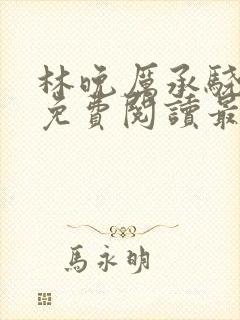 林晚厲承驍
免費閱讀最
馬永明